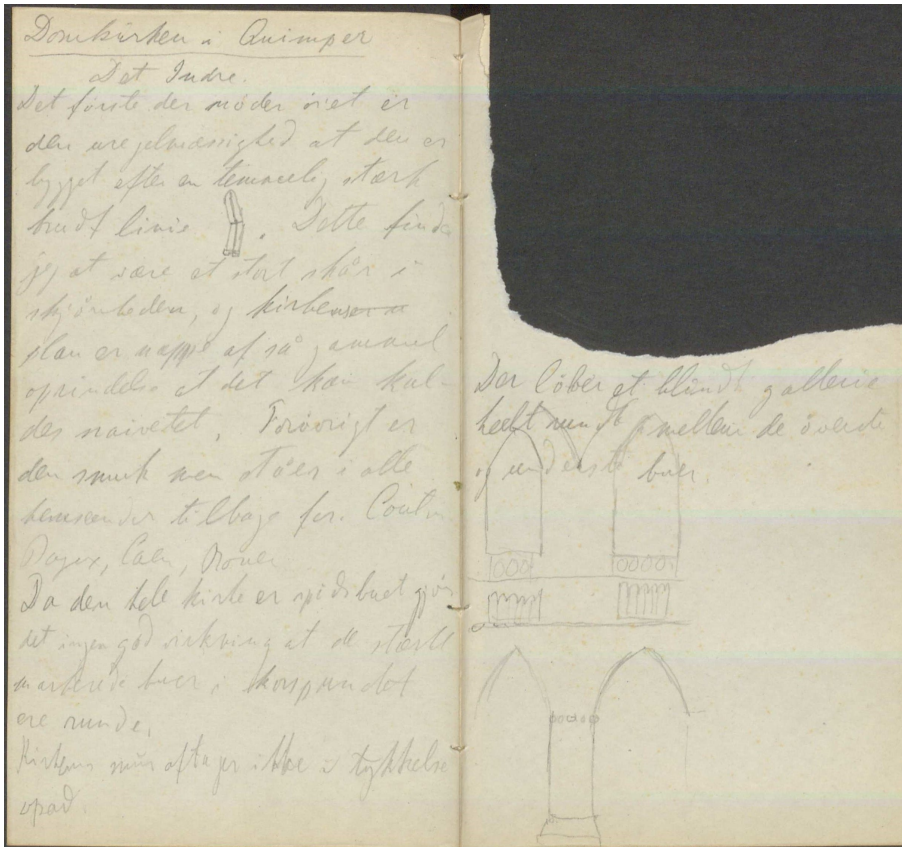 Domkirken i Quimper
Det Indre.
Det förste der möder öiet er
den uregelmæssighed at den er
bygget efter en temmelig stærk
brudt linie . Dette finder
jeg at være et stort skår i
skjönheden, og kirkens
plan er neppe af så gammel
oprindelse at det kan kal-
des naivetet. Forövrigt er
den smuk men ståer i alle
henseender tilbage for. Coutan
Bayeux, Caen, Rouen
Da den hele kirke er spidsbuet gjör
det ingen god virkning at de stærkt
markerede buer i korspundet
ere runde.
Kirkens mur aftager ikke i tykkelse
opad.
Der löber et blindt gallerie
heelt rundt mellem de överste
og underste buer.